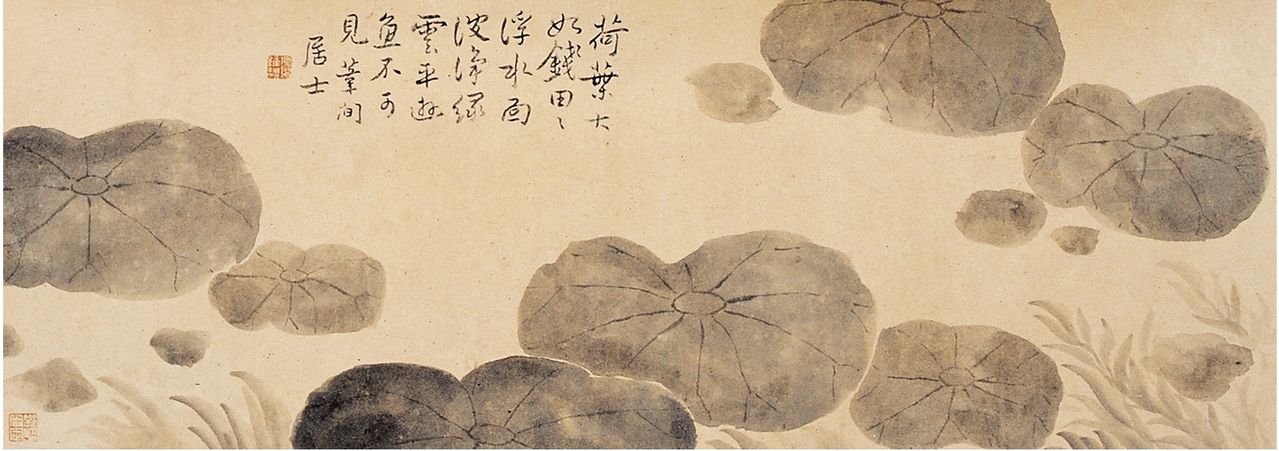 荷葉大
如錢田〻
浮水面
波深綠
雲平遊
魚不可
見葦間
居士